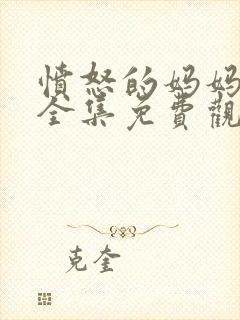 憤怒的妈妈
全集免費觀
克奎